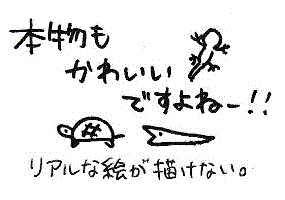 本物も
かわいい
ですよねー!!
リアルな絵が描けない。